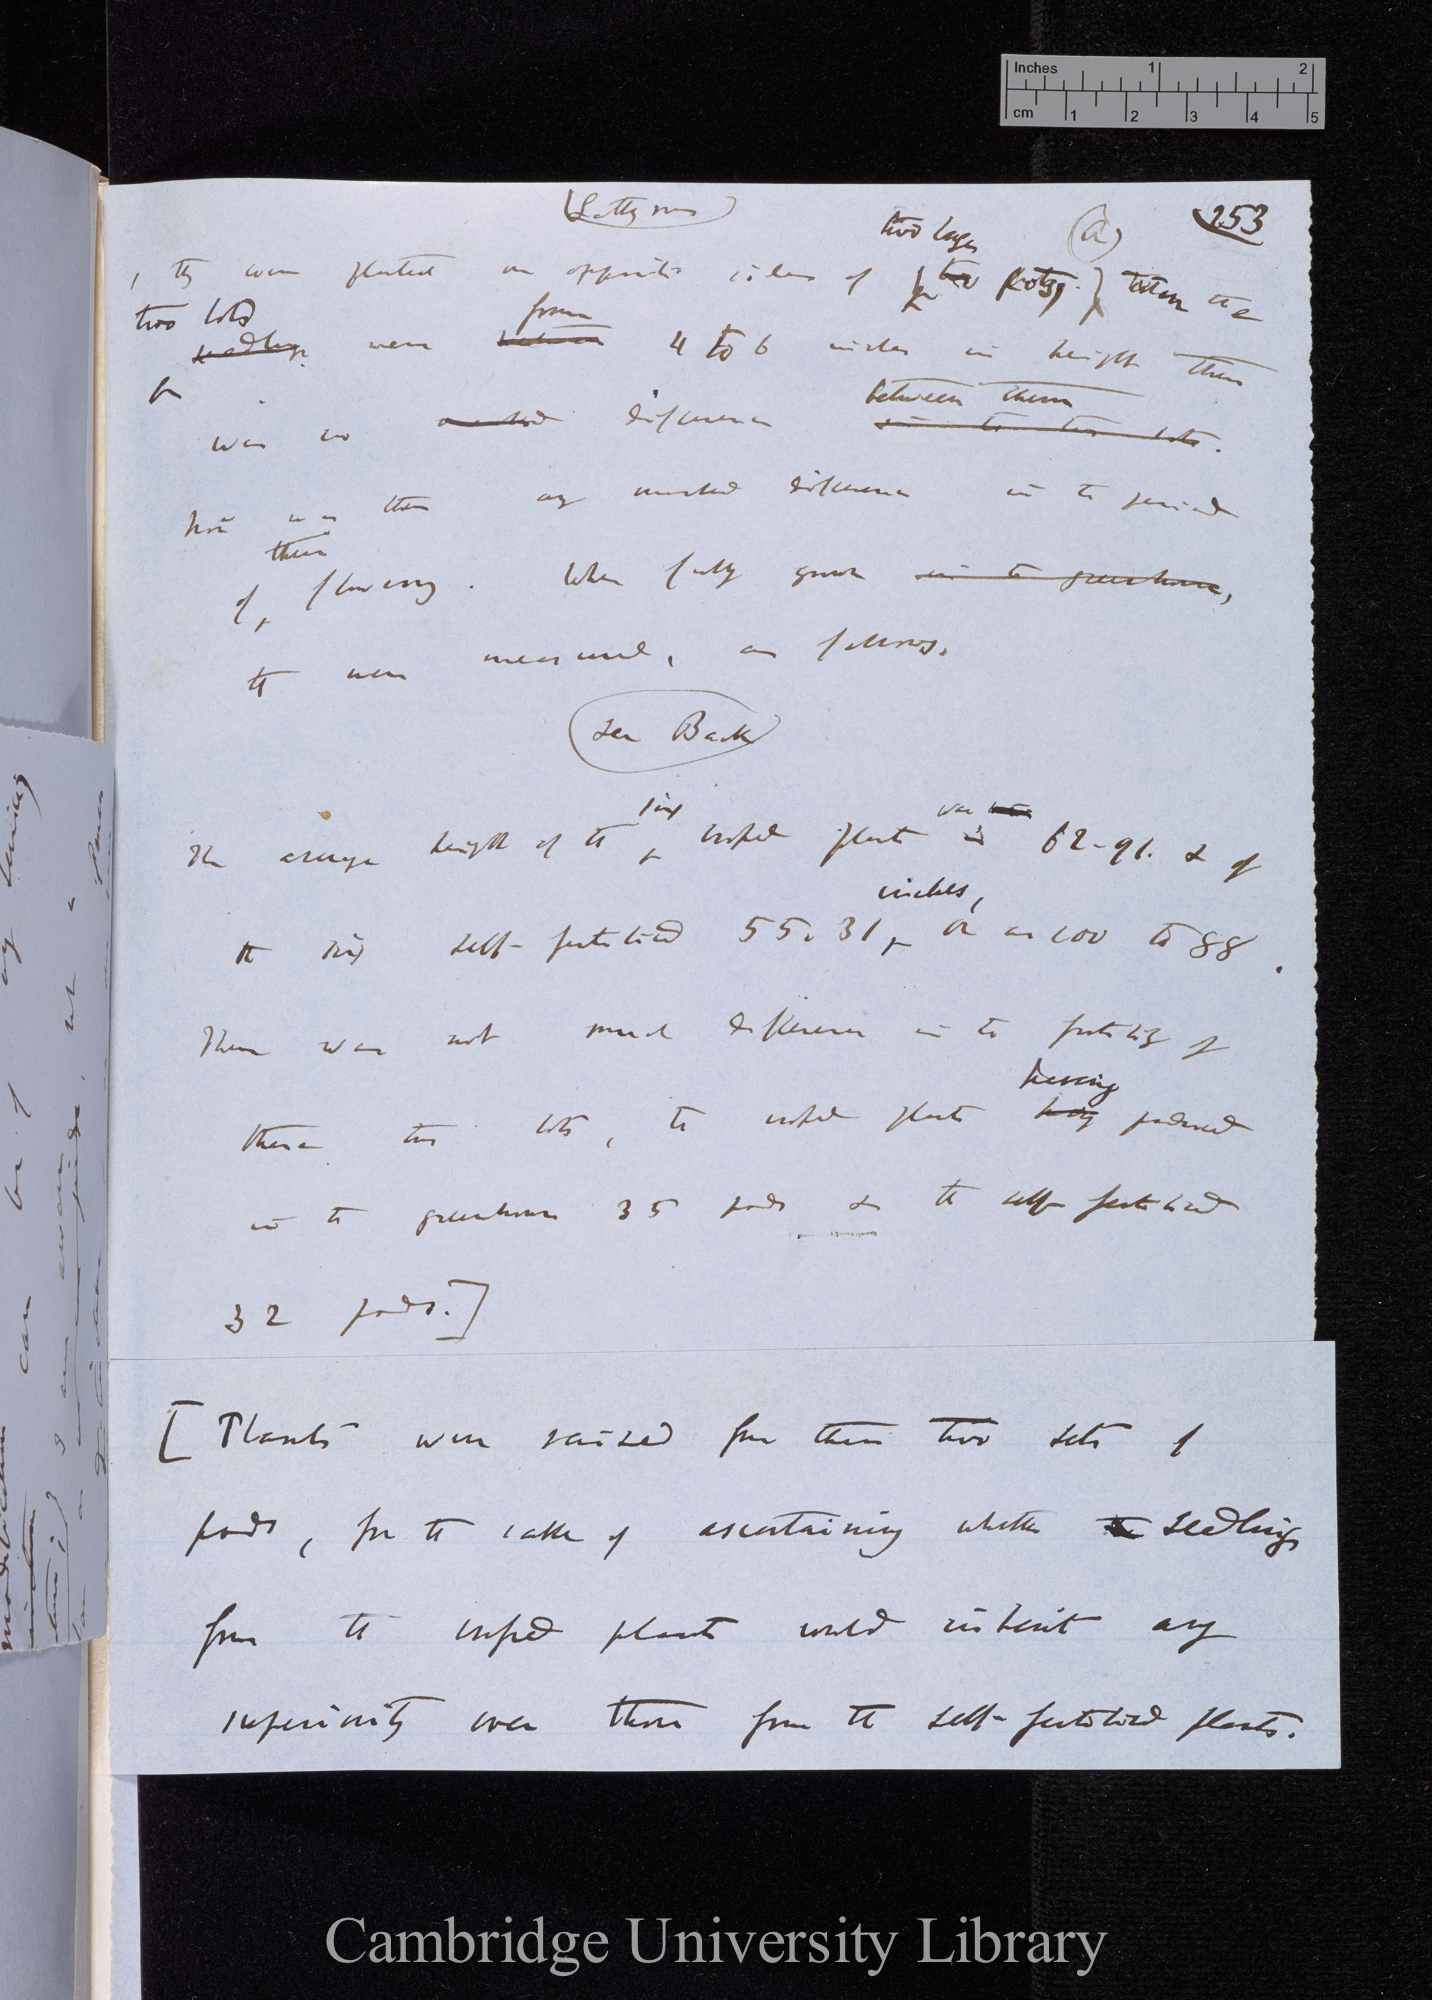 Inches 1 2
cm 1 2 3 4 5
(Lathyrus) (a) 253
two large
, they were planted on opposite sides of two pots; When the
two lots from
seedlings were between 4 to 6 inches in height there
between them
was no marked difference in the two lots.
Nor was there any marked difference in the period
their
of flowering. When fully grown in the greenhouse,
they were measured, as follows.
See Back
six was
The average height of the crossed plants is 62.91. & of
inches,
the six self-fertilised 55.31, or as 100 to 88.
There was not much difference in the fertility of
having
these two lots, the crossed plants having produced
in the greenhouse 35 pods & the self-fertilised
32 pods.]
[Plants were raised from these two sets of
pods, for the sake of ascertaining whether seedlings
from the crossed plants would inherit any
superiority over those from the self-fertilised plants.
Cambridge University Library